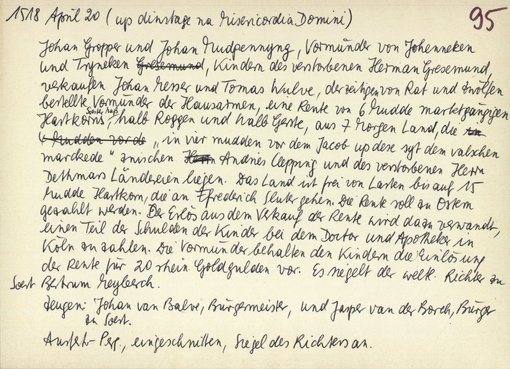 1518 April 20 (up dinstage na Misericordia Domini) 95
Johan Gropper und Johan Mudpennyng, Vormünder von Johenneken
und Tryneken Gresemund, Kindern des verstorbenen Herman Gresemund,
verkaufen Johan Messer und Tomas Wulve, derzeitgen von Rat und Zwölfen
bestellte Vormünder der Hausarmen, eine Rente von 6 Mudde marktgängigen
Hartkorns, halb Roggen und halb Gerste, aus 7 Morgen Land, die
"in vier mudden vor dem Jacob up desse syt dem valschen
marckede" zwischen Andries Clepping und des verstorbenen Herrn
Dethmars Ländereien liegen. Das Land ist frei von Lasten bis auf 15
Mudde Hartkorn, die an Frederich Sluter gehen. Die Rente soll zu Ostern
gezahlt werden. Der Erlös aus dem Verkauf der Rente wird dazu verwandt,
einen Teil der Schulden der Kinder bei dem Doctor und Apotheker in
Köln zu zahlen. Die Vormünder behalten den Kindern die Einlösung
der Rente für 20 rhein Goldgulden vor. Es siegelt der welt. Richter zu
Soest Bertram Meyberch.
Zeugen: Johan van Balve, Bürgermeister, und Jasper van der Borch, Bürger
zu Soest.
Ausf.- Perg., eingeschnitten, Siegel des Richters an.